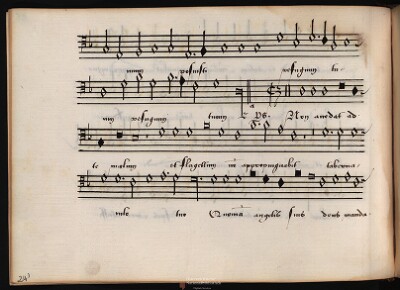 mum posuisti refugium tu
um refugium tuum Ps. Non accedat ad
te malum et flagellum nō appropinquabit taberna
culo tuo Quoniā angelis suis deus manda